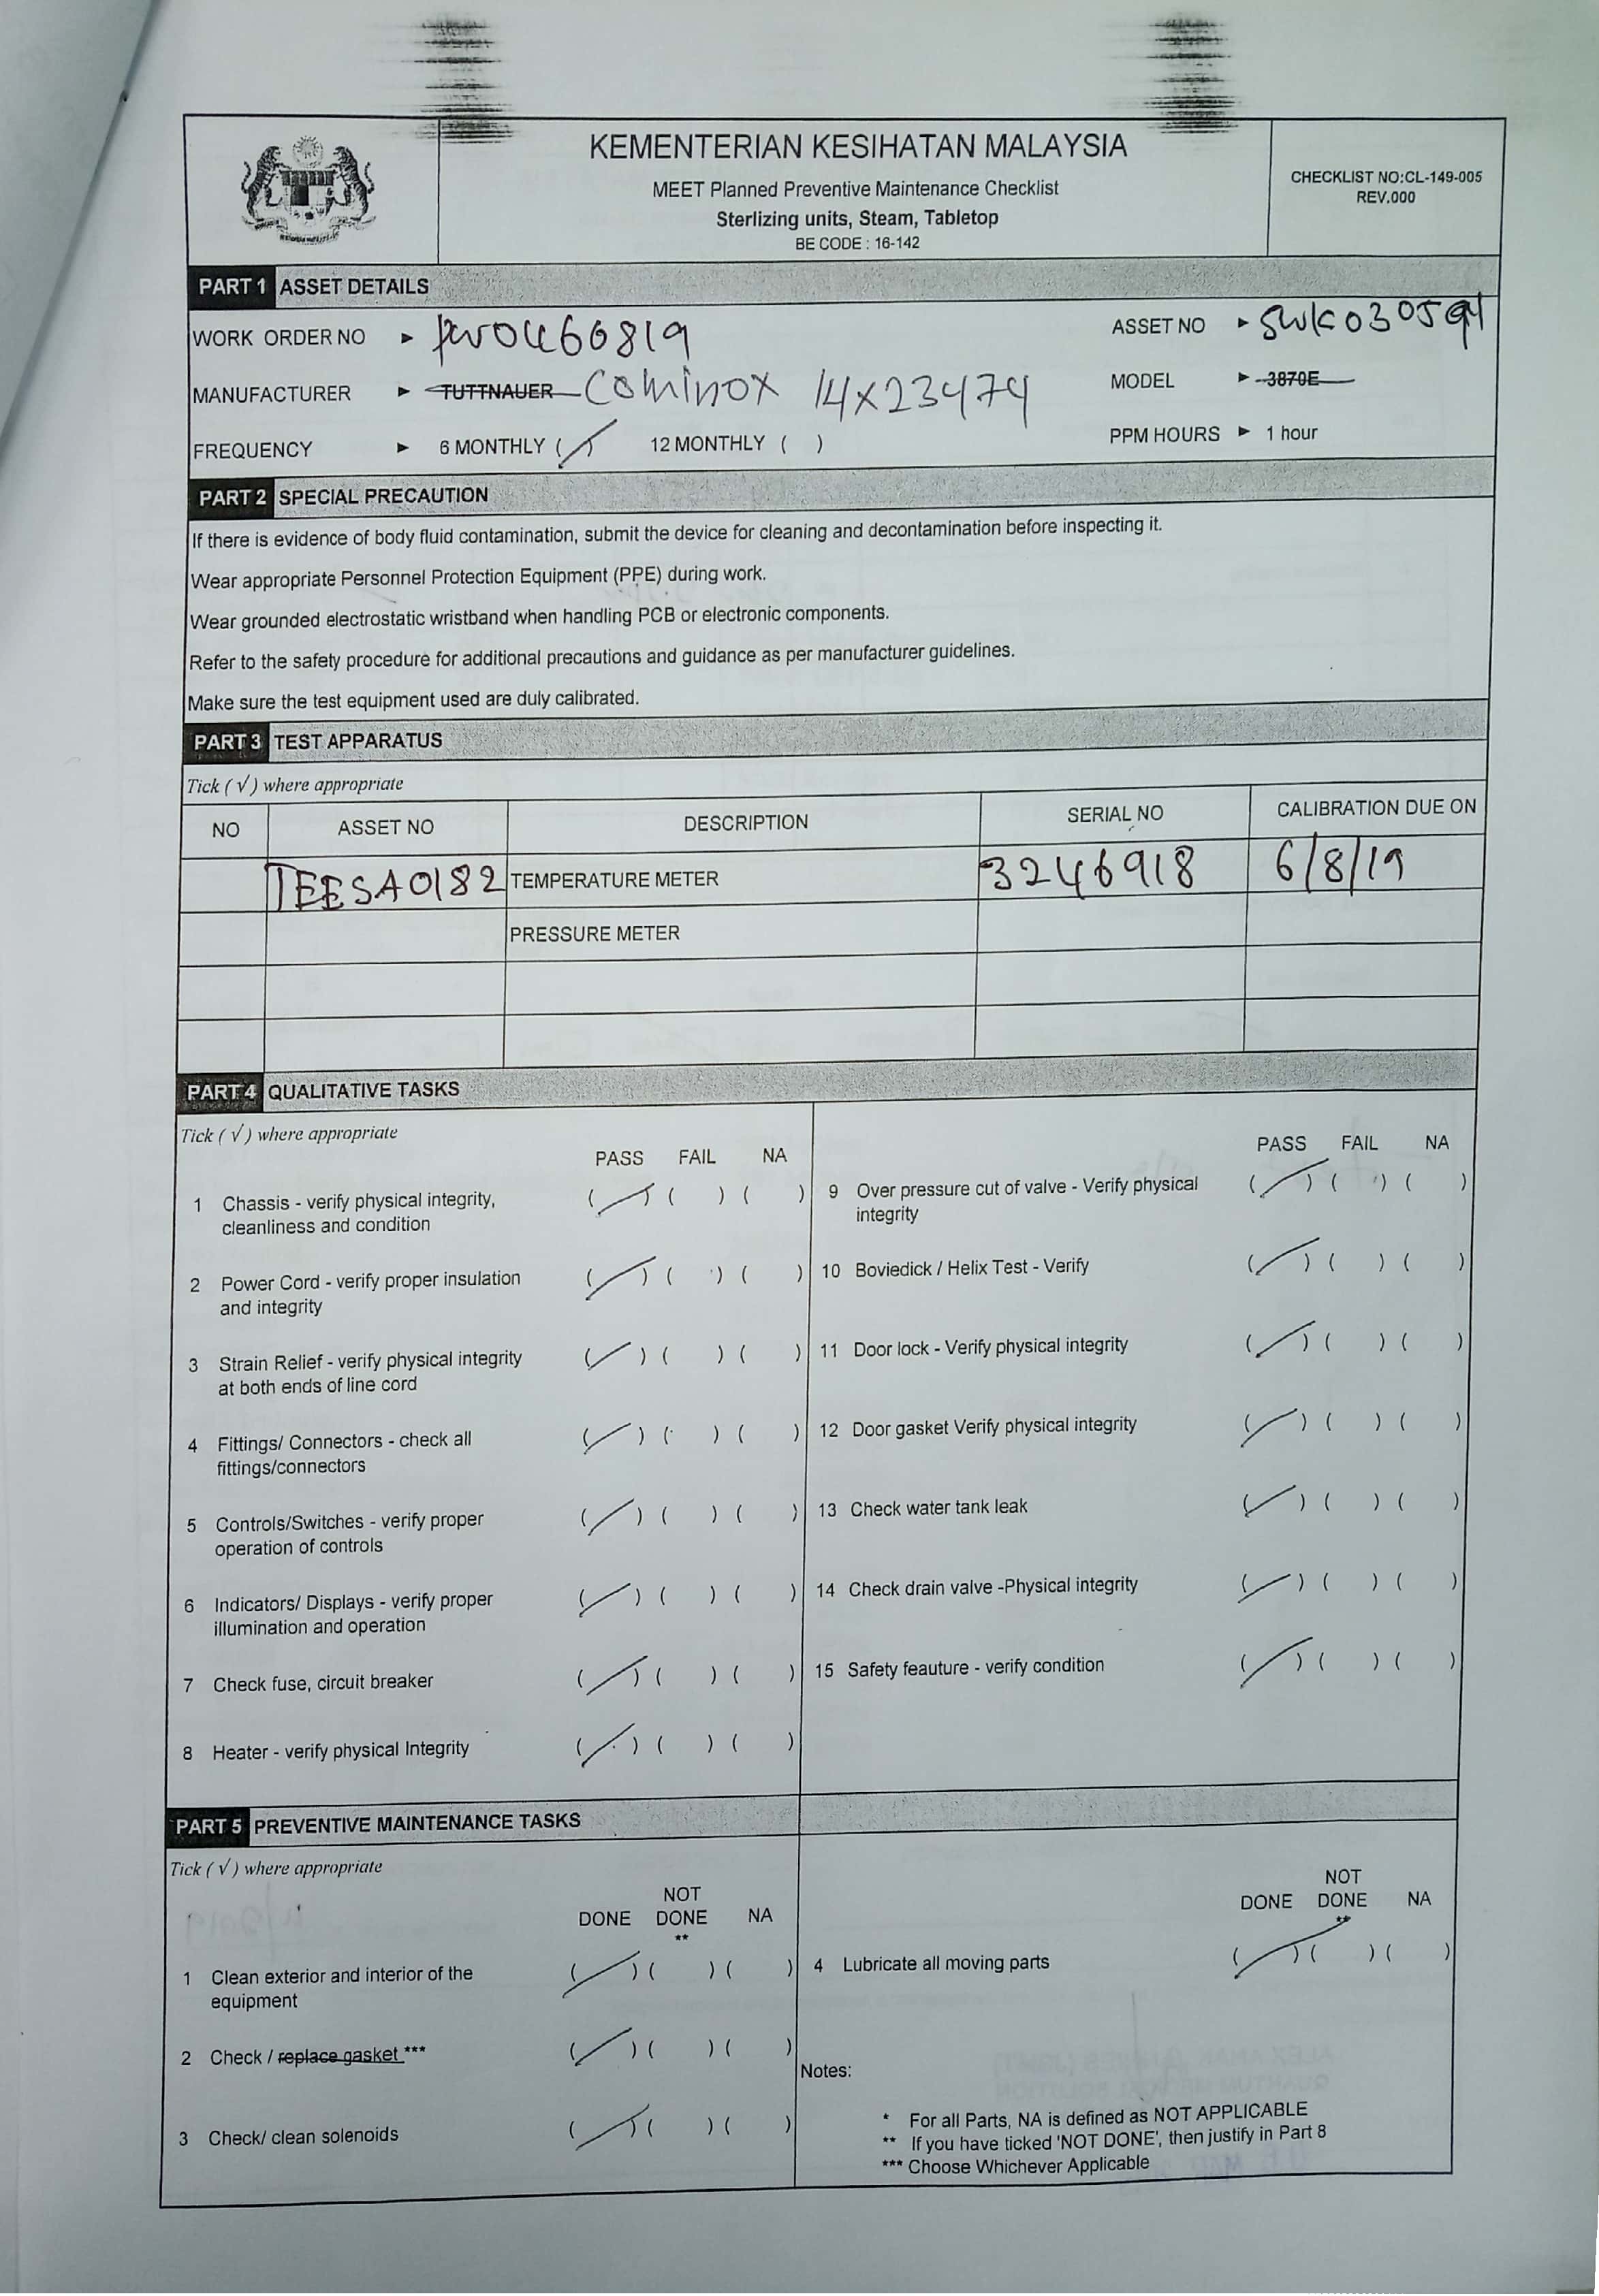 KEMENTERIAN KESIHATAN MALAYSIA
MEET Planned Preventive Maintenance Checklist
Sterlizing units, Steam, Tabletop
BE CODE : 16-142
CHECKLIST NO:CL-149-005
REV.000
PART 1 ASSET DETAILS
WORK ORDER NO ► PWO466819 ASSET NO ► SWK030591
MANUFACTURER ► TUTTNAUER Cominox 14x23474 MODEL ► 3870E
FREQUENCY ► 6 MONTHLY (/) 12 MONTHLY ( ) PPM HOURS ► 1 hour
PART 2 SPECIAL PRECAUTION
If there is evidence of body fluid contamination, submit the device for cleaning and decontamination before inspecting it.
Wear appropriate Personnel Protection Equipment (PPE) during work.
Wear grounded electrostatic wristband when handling PCB or electronic components.
Refer to the safety procedure for additional precautions and guidance as per manufacturer guidelines.
Make sure the test equipment used are duly calibrated.
PART 3 TEST APPARATUS
Tick ( √ ) where appropriate
NO ASSET NO DESCRIPTION SERIAL NO CALIBRATION DUE ON
TEESA0182 TEMPERATURE METER 3246918 6/8/19
PRESSURE METER
PART 4 QUALITATIVE TASKS
Tick ( √ ) where appropriate
PASS FAIL NA
1 Chassis - verify physical integrity, (/) ( ) ( )
cleanliness and condition
2 Power Cord - verify proper insulation (/) ( ) ( )
and integrity
3 Strain Relief - verify physical integrity (/) ( ) ( )
at both ends of line cord
4 Fittings/ Connectors - check all (/) ( ) ( )
fittings/connectors
5 Controls/Switches - verify proper (/) ( ) ( )
operation of controls
6 Indicators/ Displays - verify proper (/) ( ) ( )
illumination and operation
7 Check fuse, circuit breaker (/) ( ) ( )
8 Heater - verify physical Integrity (/) ( ) ( )
PASS FAIL NA
9 Over pressure cut of valve - Verify physical (/) ( ) ( )
integrity
10 Boviedick / Helix Test - Verify (/) ( ) ( )
11 Door lock - Verify physical integrity (/) ( ) ( )
12 Door gasket Verify physical integrity (/) ( ) ( )
13 Check water tank leak (/) ( ) ( )
14 Check drain valve -Physical integrity (/) ( ) ( )
15 Safety feauture - verify condition (/) ( ) ( )
PART 5 PREVENTIVE MAINTENANCE TASKS
Tick ( √ ) where appropriate
NOT
DONE DONE NA
**
1 Clean exterior and interior of the (/) ( ) ( )
equipment
2 Check / replace gasket *** (/) ( ) ( )
3 Check/ clean solenoids (/) ( ) ( )
NOT
DONE DONE NA
**
4 Lubricate all moving parts (/) ( ) ( )
Notes:
* For all Parts, NA is defined as NOT APPLICABLE
** If you have ticked 'NOT DONE', then justify in Part 8
*** Choose Whichever Applicable